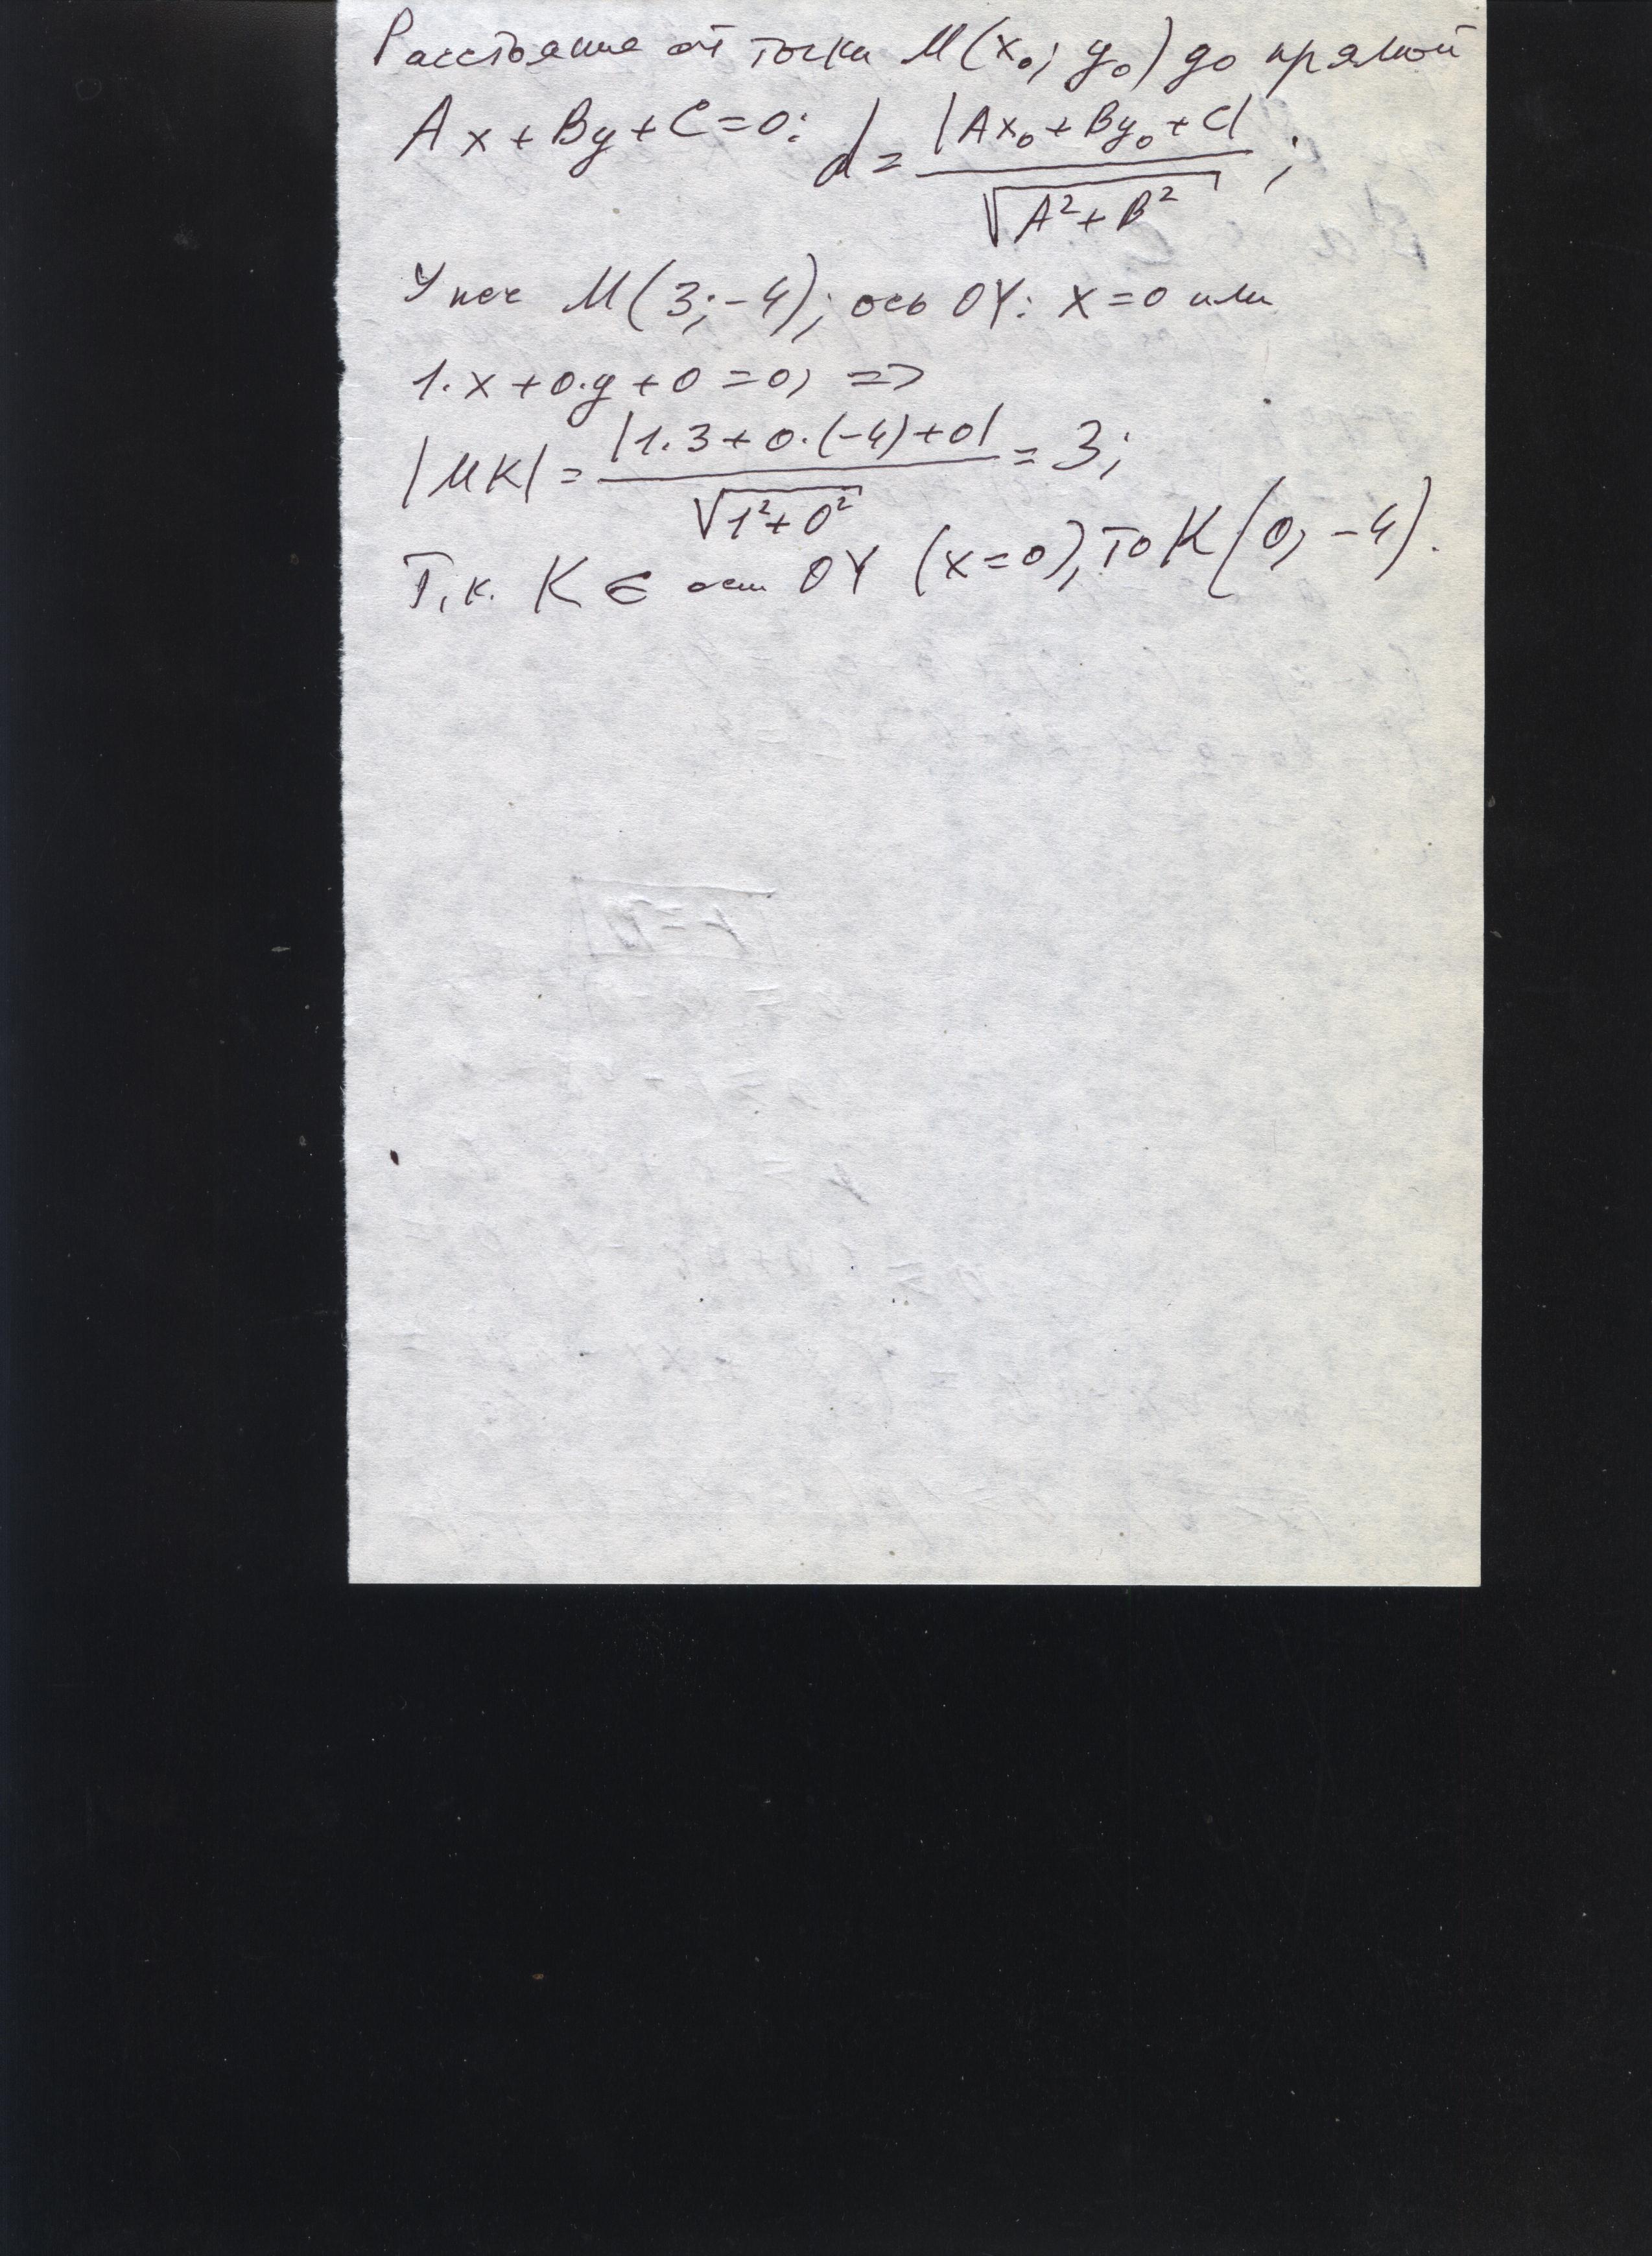 Расстояние от точки M(x₀; y₀) до прямой
Ax + By + C = 0: d = |Ax₀ + By₀ + C| / √(A² + B²) ;
У нас M(3; -4); ось OY: x = 0 или
1·x + 0·y + 0 = 0; =>
|MK| = |1·3 + 0·(-4) + 0| / √(1² + 0²) = 3;
Т.к. K ∈ оси OY (x=0), то K(0; -4).